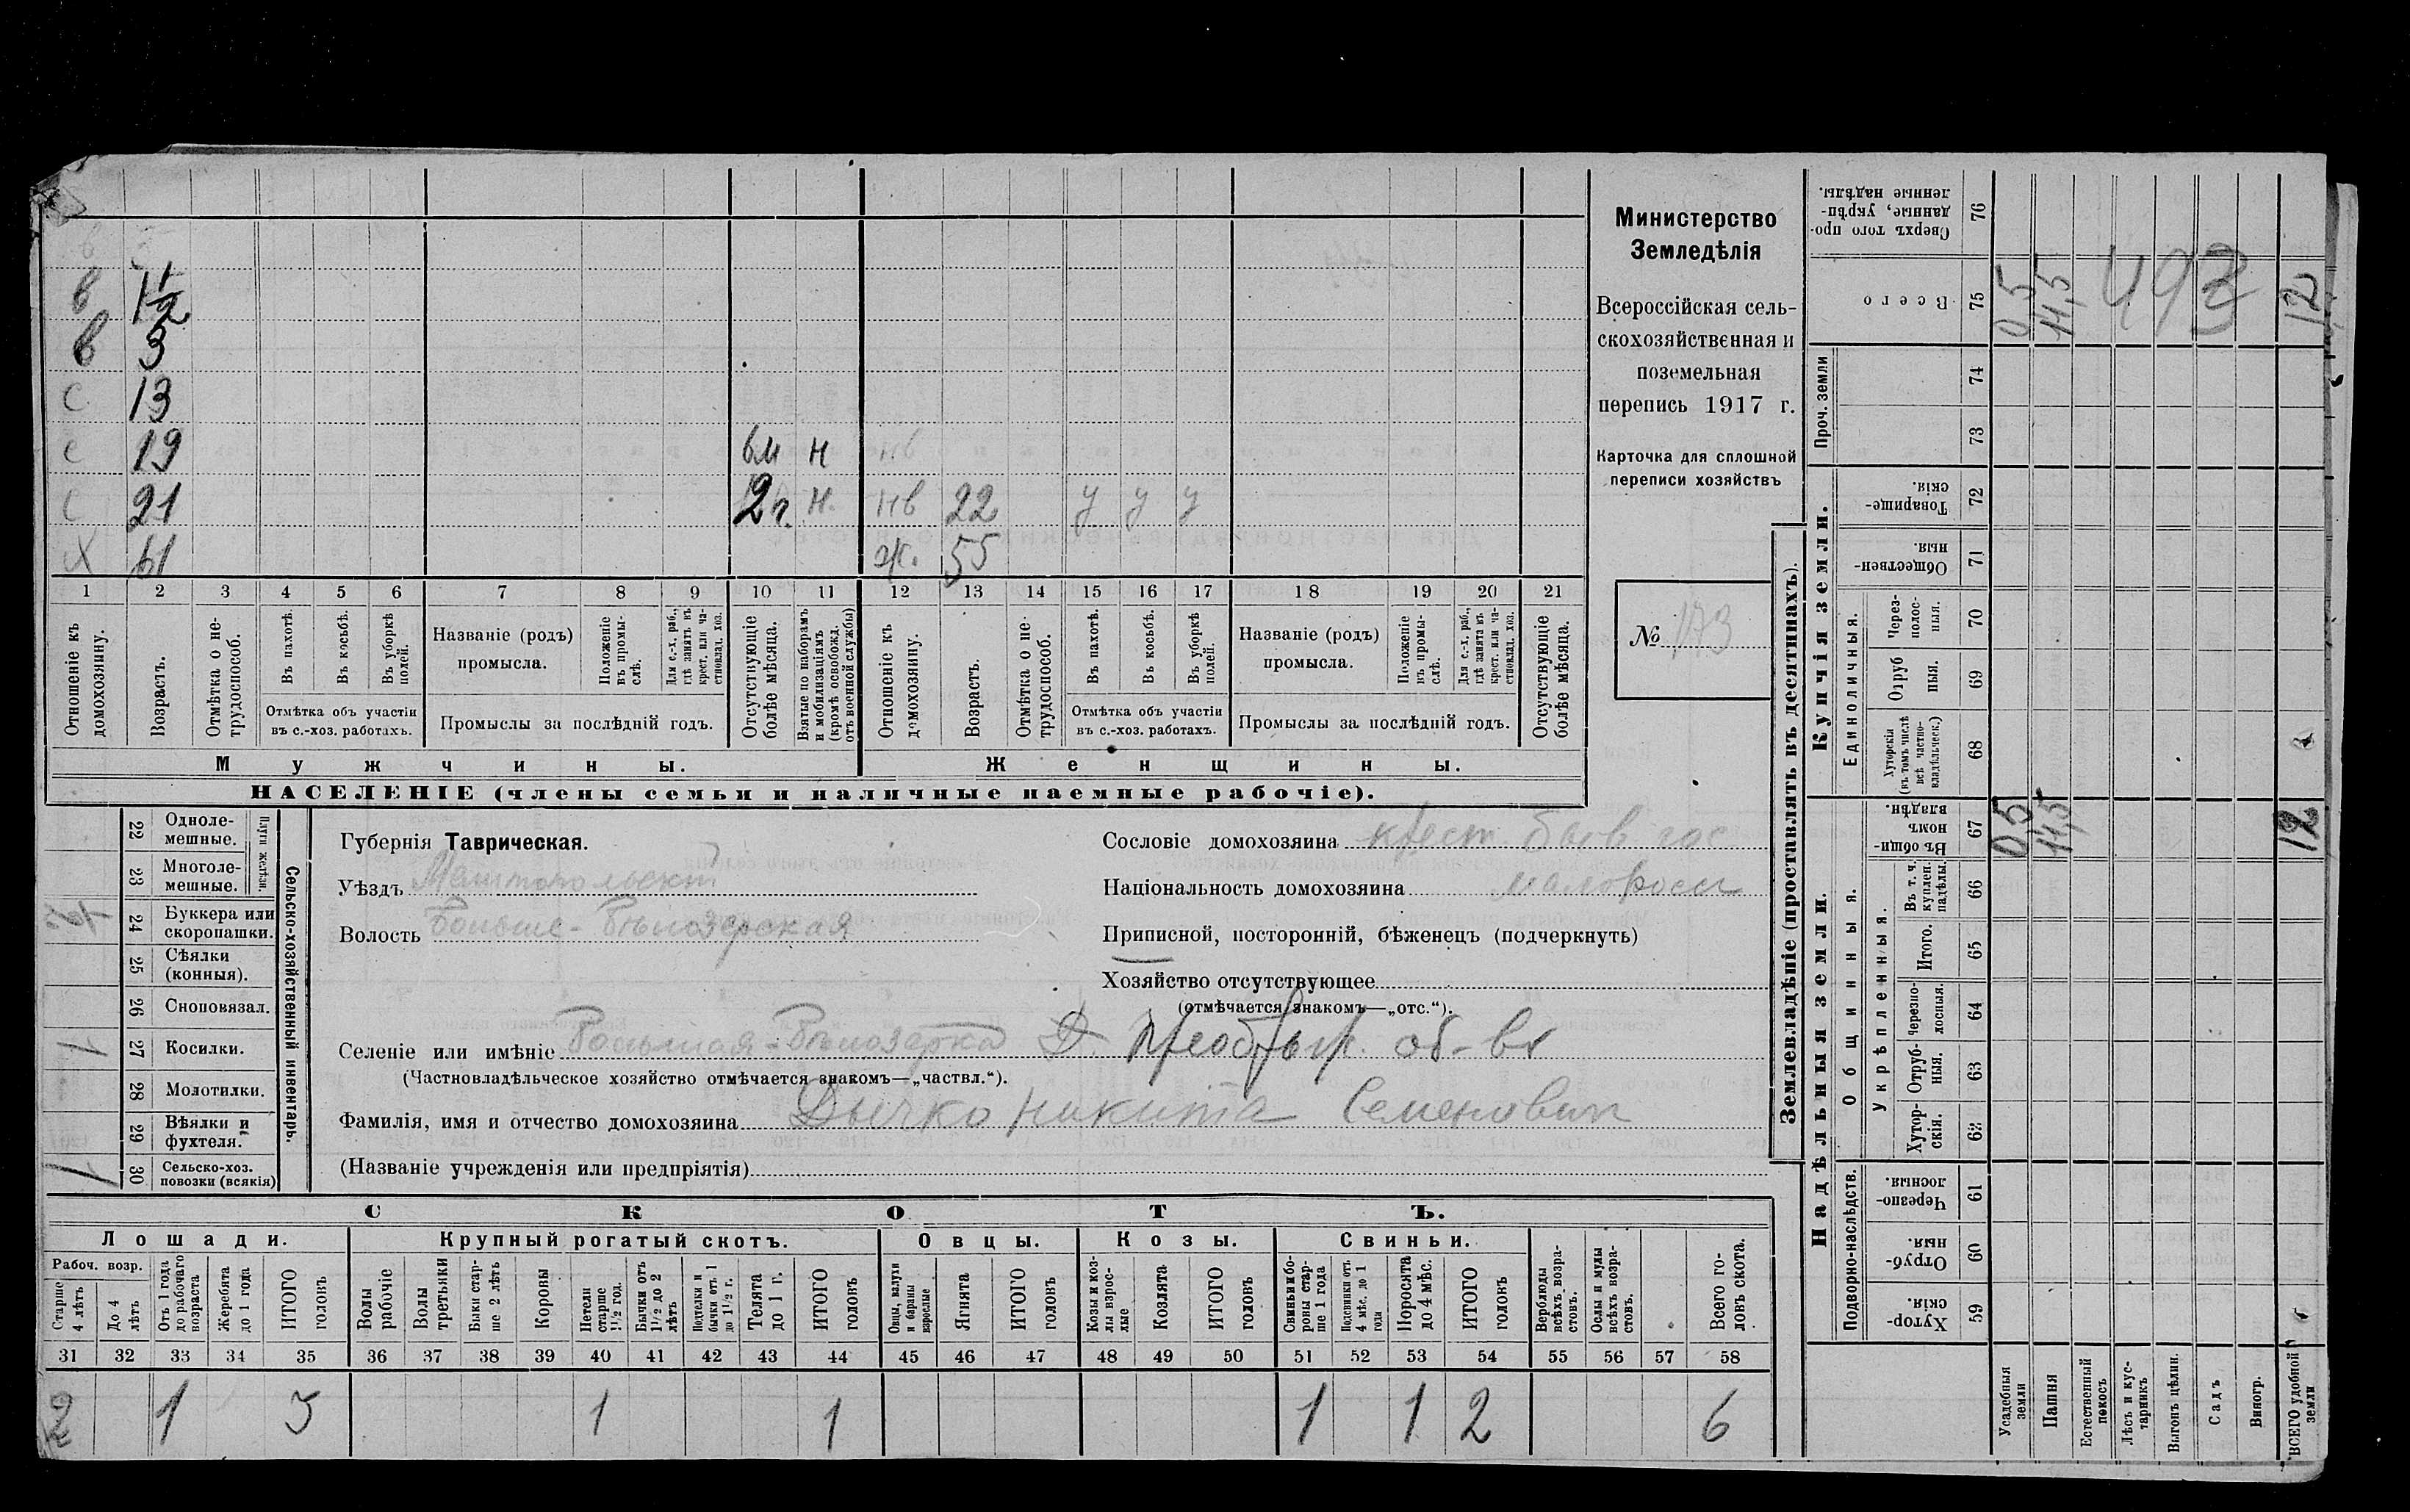 в 1 1/2
в 3
с 13
с 19 вм н нв
с 21 2 г. н. нв 22 у у у
х 61 ж. 55
1 2 3 4 5 6 7 8 9 10 11 12 13 14 15 16 17 18 19 20 21
Отношеніе къ домохозяину.
Возрастъ.
Отмѣтка о нетрудоспособ.
Въ пахотѣ.
Въ косьбѣ.
Въ уборкѣ полей.
Отмѣтка объ участіи
въ с.-хоз. работахъ.
Названіе (родъ)
промысла.
Положеніе въ промыслѣ.
Для с.-х. раб., гдѣ занятъ въ крест. или частновлад. хоз.
Промыслы за послѣдній годъ.
Отсутствующіе болѣе мѣсяца.
Взятые по наборамъ и мобилизаціямъ (кромѣ освобожд. отъ военной службы)
Отношеніе къ домохозяину.
Возрастъ.
Отмѣтка о нетрудоспособ.
Въ пахотѣ.
Въ косьбѣ.
Въ уборкѣ полей.
Отмѣтка объ участіи
въ с.-хоз. работахъ.
Названіе (родъ)
промысла.
Положеніе въ промыслѣ.
Для с.-х. раб., гдѣ занята въ крест. или частновлад. хоз.
Промыслы за послѣдній годъ.
Отсутствующіе болѣе мѣсяца.
Мужчины.
Женщины.
НАСЕЛЕНІЕ (члены семьи и наличные наемные рабочіе).
Министерство
Земледѣлія
Всероссійская сель-
скохозяйственная и
поземельная
перепись 1917 г.
Карточка для сплошной
переписи хозяйствъ
№ 173
22 Одноле-
мешные.
23 Многоле-
мешные.
Плуги желѣзн.
24 Буккера или
скоропашки.
25 Сѣялки
(конныя).
26 Сноповязал.
1 27 Косилки.
28 Молотилки.
29 Вѣялки и
фухтеля.
1 30 Сельско-хоз.
повозки (всякія)
Сельско-хозяйственный инвентарь.
Губернія Таврическая.
Уѣздъ Мелитопольскій
Волость Больше-Бѣлозерская
Сословіе домохозяина крест. быв гос
Національность домохозяина малоросс
Приписной, посторонній, бѣженецъ (подчеркнуть)
Хозяйство отсутствующее
(отмѣчается знакомъ—„отс.“).
Селеніе или имѣніе Большая-Бѣлозерка об-во
(Частновладѣльческое хозяйство отмѣчается знакомъ—„частвл.“).
Фамилія, имя и отчество домохозяина Дычко Никита Семенович
(Названіе учрежденія или предпріятія)
СКОТЪ.
Лошади.
Крупный рогатый скотъ.
Овцы.
Козы.
Свиньи.
Рабоч. возр.
Старше 4 лѣтъ
До 4 лѣтъ
Отъ 1 года до рабочаго возраста
Жеребята до 1 года
ИТОГО головъ
Волы рабочіе
Волы третьяки
Быки старше 2 лѣтъ
Коровы
Нетели старше 1½ год.
Бычки отъ 1½ до 2 лѣтъ
Подтелки и бычки отъ 1 до 1½ г.
Телята до 1 г.
ИТОГО головъ
Овцы, валухи и бараны взрослые
Ягнята
ИТОГО головъ
Козы и козлы взрослые
Козлята
ИТОГО головъ
Свиньи боровы старше 1 года
Подсвинки отъ 4 мѣс. до 1 года
Поросята до 4 мѣс.
ИТОГО головъ
Верблюды всѣхъ возрастовъ.
Ослы и мулы всѣхъ возрастовъ.
Всего головъ скота.
31 32 33 34 35 36 37 38 39 40 41 42 43 44 45 46 47 48 49 50 51 52 53 54 55 56 57 58
2 1 3 1 1 1 1 2 6
Землевладѣніе (проставлять въ десятинахъ).
Купчія земли.
Надѣльныя земли.
Проч. земли
Единоличныя.
Общинныя.
Укрѣпленныя.
Подворно-наслѣдств.
Сверхъ того проданные, укрѣпленные надѣлы. 76
Всего 75 0,5 11,5 12
493
74
73
Товарищескія. 72
Общественныя. 71
Черезполосныя. 70
Отрубныя. 69
Хуторскія (въ томъ числѣ всѣ частновладѣльческ.) 68
Въ общинномъ владѣн. 67 0,5 11,5 12
Въ т. ч. куплен. надѣлы. 66
Итого. 65
Черезполосныя. 64
Отрубныя. 63
Хуторскія. 62
Черезполосныя. 61
Отрубныя. 60
Хуторскія. 59
Усадебныя земли
Пашня
Естественный покосъ
Лѣсъ и кустарникъ
Выгонъ цѣлин.
Садъ
Виногр.
ВСЕГО удобной земли